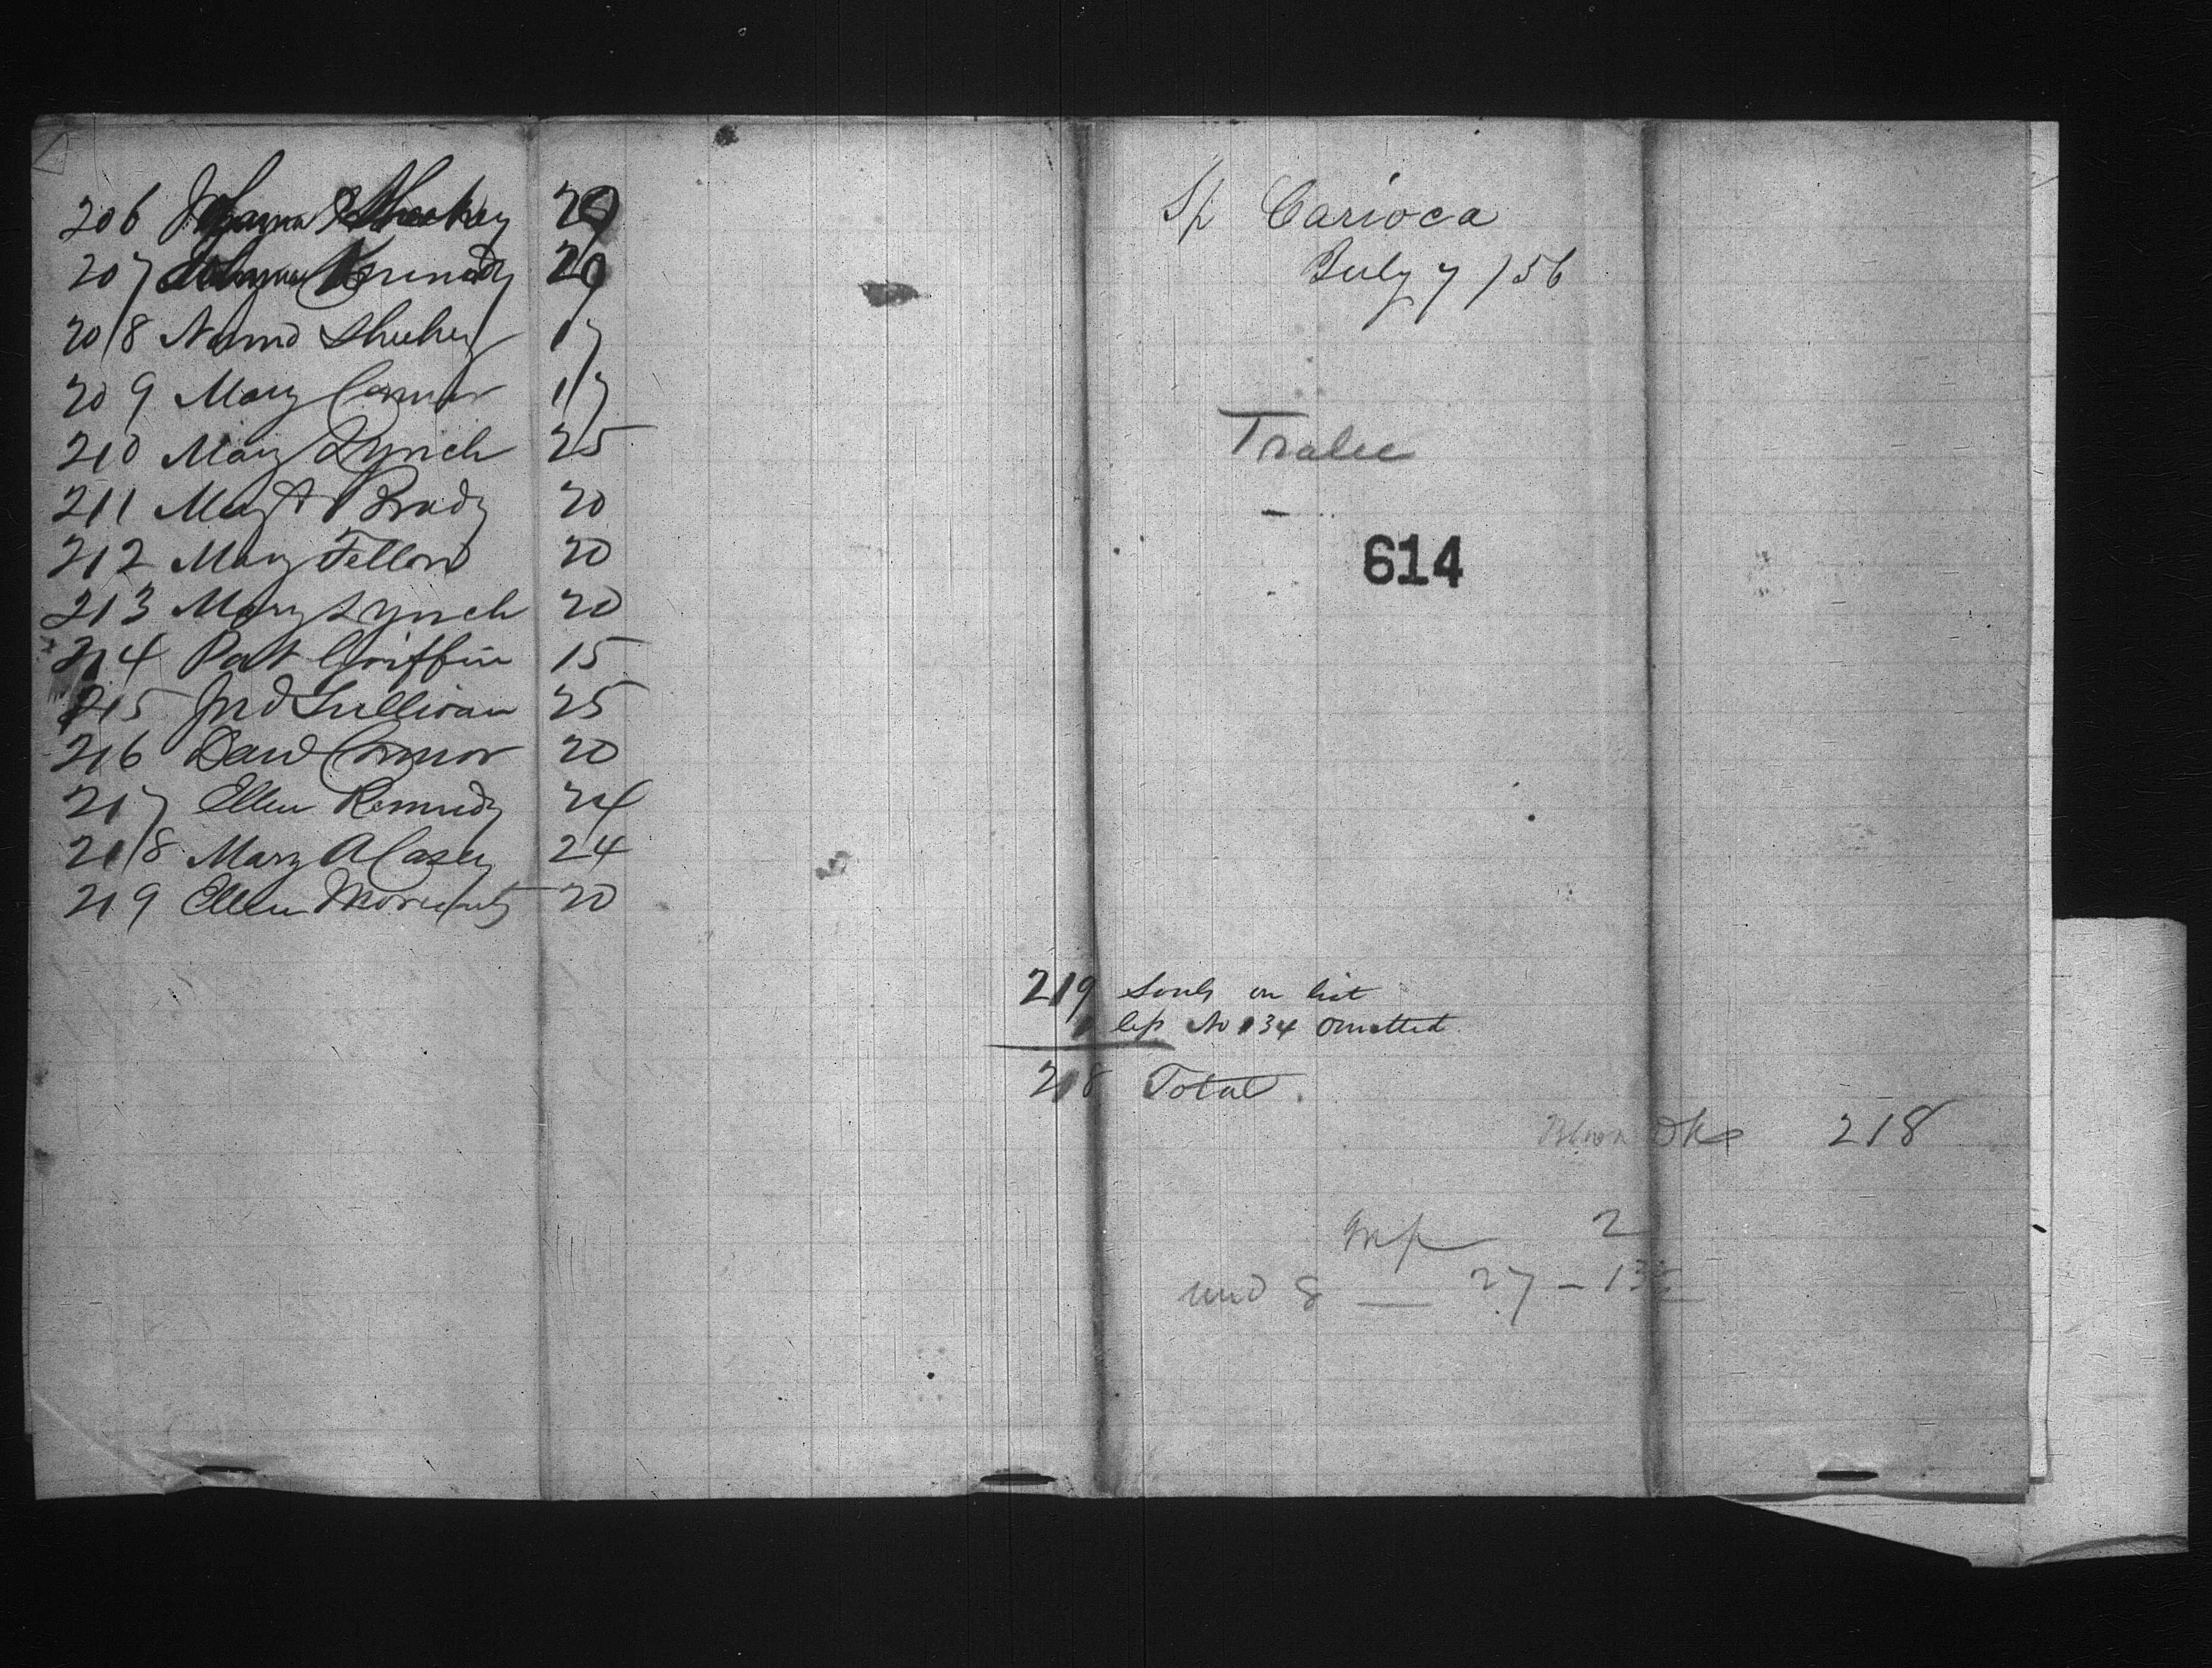 206 Johanna Sheehy 20
207 Johanna Kennedy 20
208 Nano Sheehy 17
209 Mary Connor 17
210 Mary Lynch 25
211 Magt Brady 20
212 Mary Fellon 20
213 Mary Lynch 20
214 Pat Griffin 15
215 Jno Sullivan 25
216 David Connor 20
217 Ellen Kennedy 24
218 Mary A Casey 24
219 Ellen Moriarty 20
Sp Carioca
July 7 / 56
Tralee
614
219 Souls on list
1 less No 134 Omitted
218 Total.
218
2
und 8 — 27 –